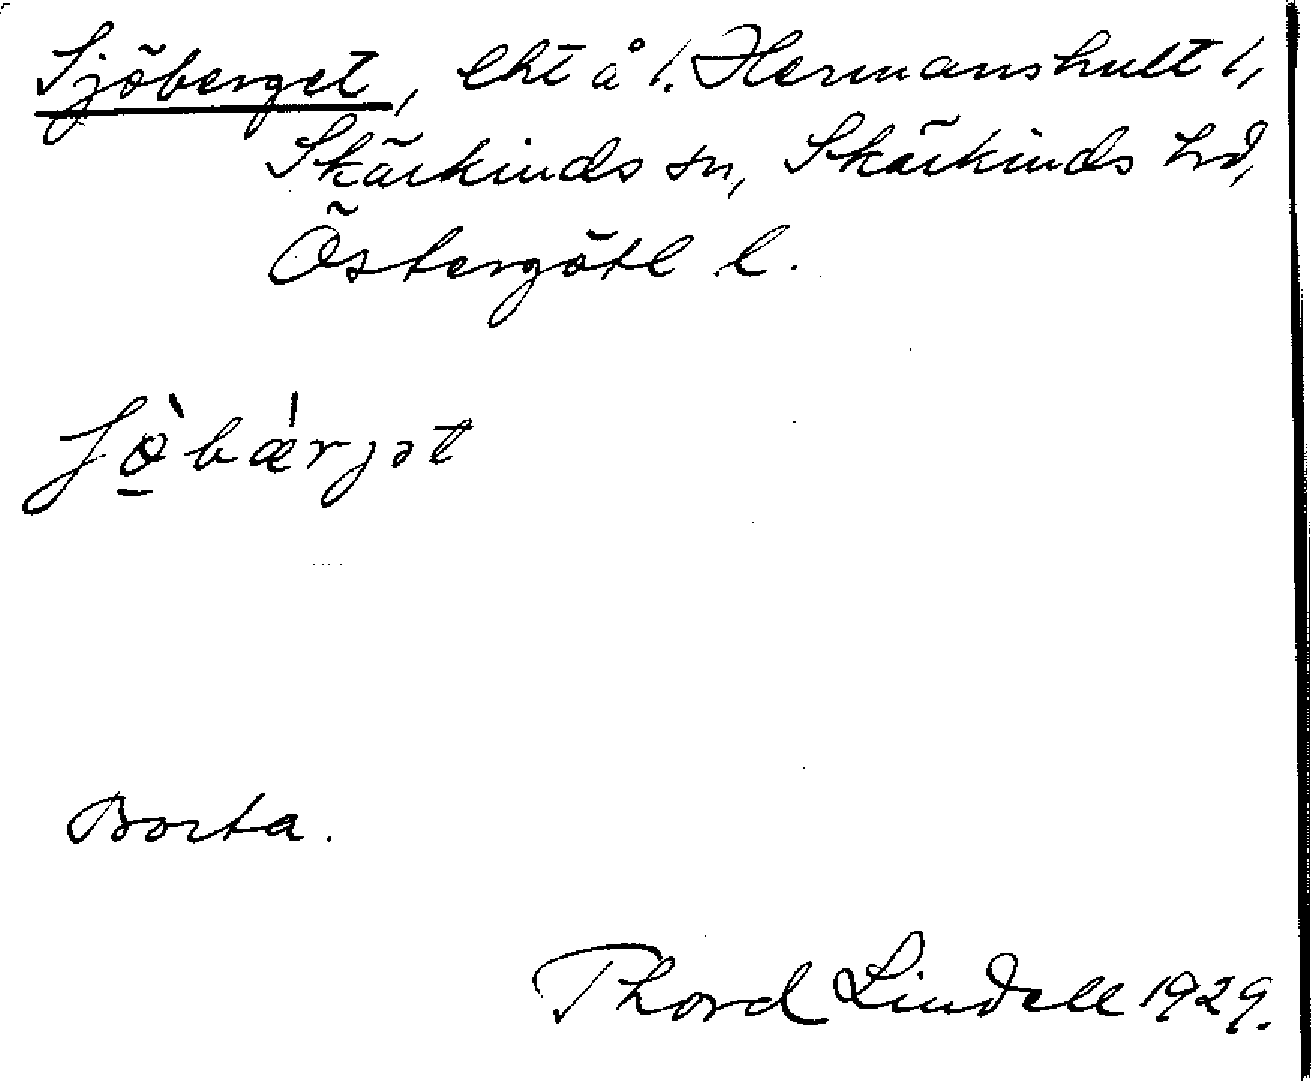 Sjöberget, lht å 1. Hermanshult 1,
Skärkinds sn, Skärkinds hd,
Östergötl l.
ʃø̠̀bǽrjət
Borta.
Thord Lindell 1929.